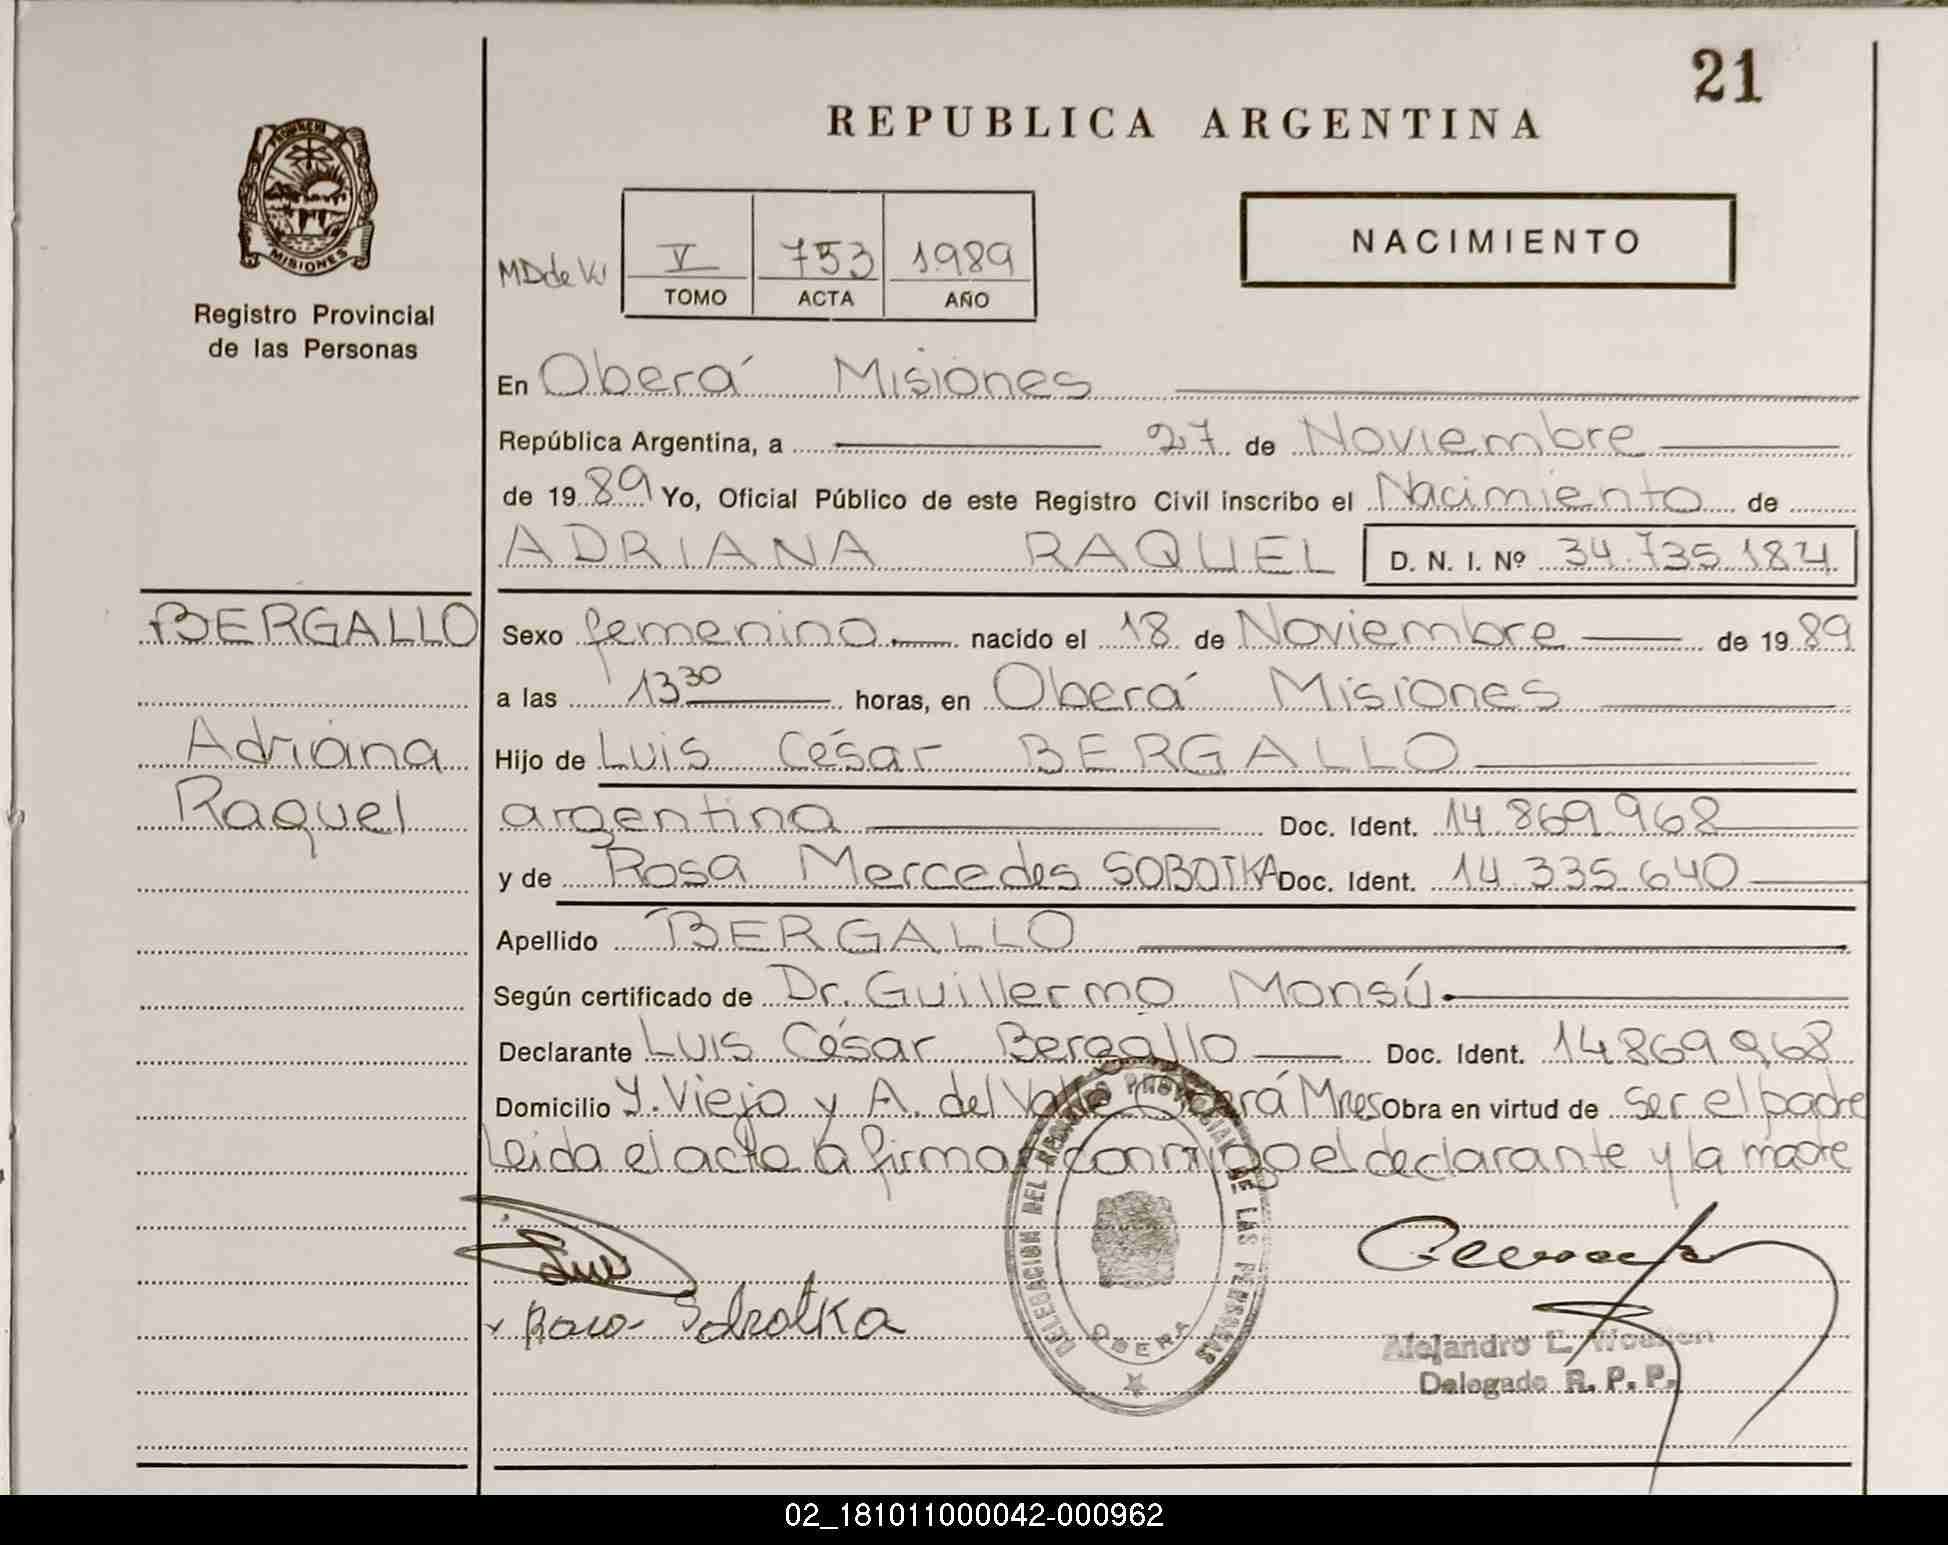 21
REPUBLICA ARGENTINA
MISIONES
Registro Provincial
de las Personas
MD de W
V 753 1989
TOMO ACTA AÑO
NACIMIENTO
En Oberá Misiones
República Argentina, a 27 de Noviembre
de 1989 Yo, Oficial Público de este Registro Civil inscribo el Nacimiento de
ADRIANA RAQUEL D. N. I. Nº 34.735.184
BERGALLO
Adriana
Raquel
Sexo femenino nacido el 18 de Noviembre de 1989
a las 13 30 horas, en Oberá Misiones
Hijo de Luis César BERGALLO
argentina Doc. Ident. 14.869.968
y de Rosa Mercedes SOBOTKA Doc. Ident. 14.335.640
Apellido BERGALLO
Según certificado de Dr. Guillermo Monsú
Declarante Luis César Bergallo Doc. Ident. 14.869.968
Domicilio Y. Viejo y A. del Valle Oberá Mnes Obra en virtud de ser el padre
Leida el acta la firman conmigo el declarante y la madre
DELEGACION DEL REGISTRO PROVINCIAL DE LAS PERSONAS
OBERA
Luis
Rosa Sobotka
Alejandro E.
Delegado R. P. P.
02_181011000042-000962